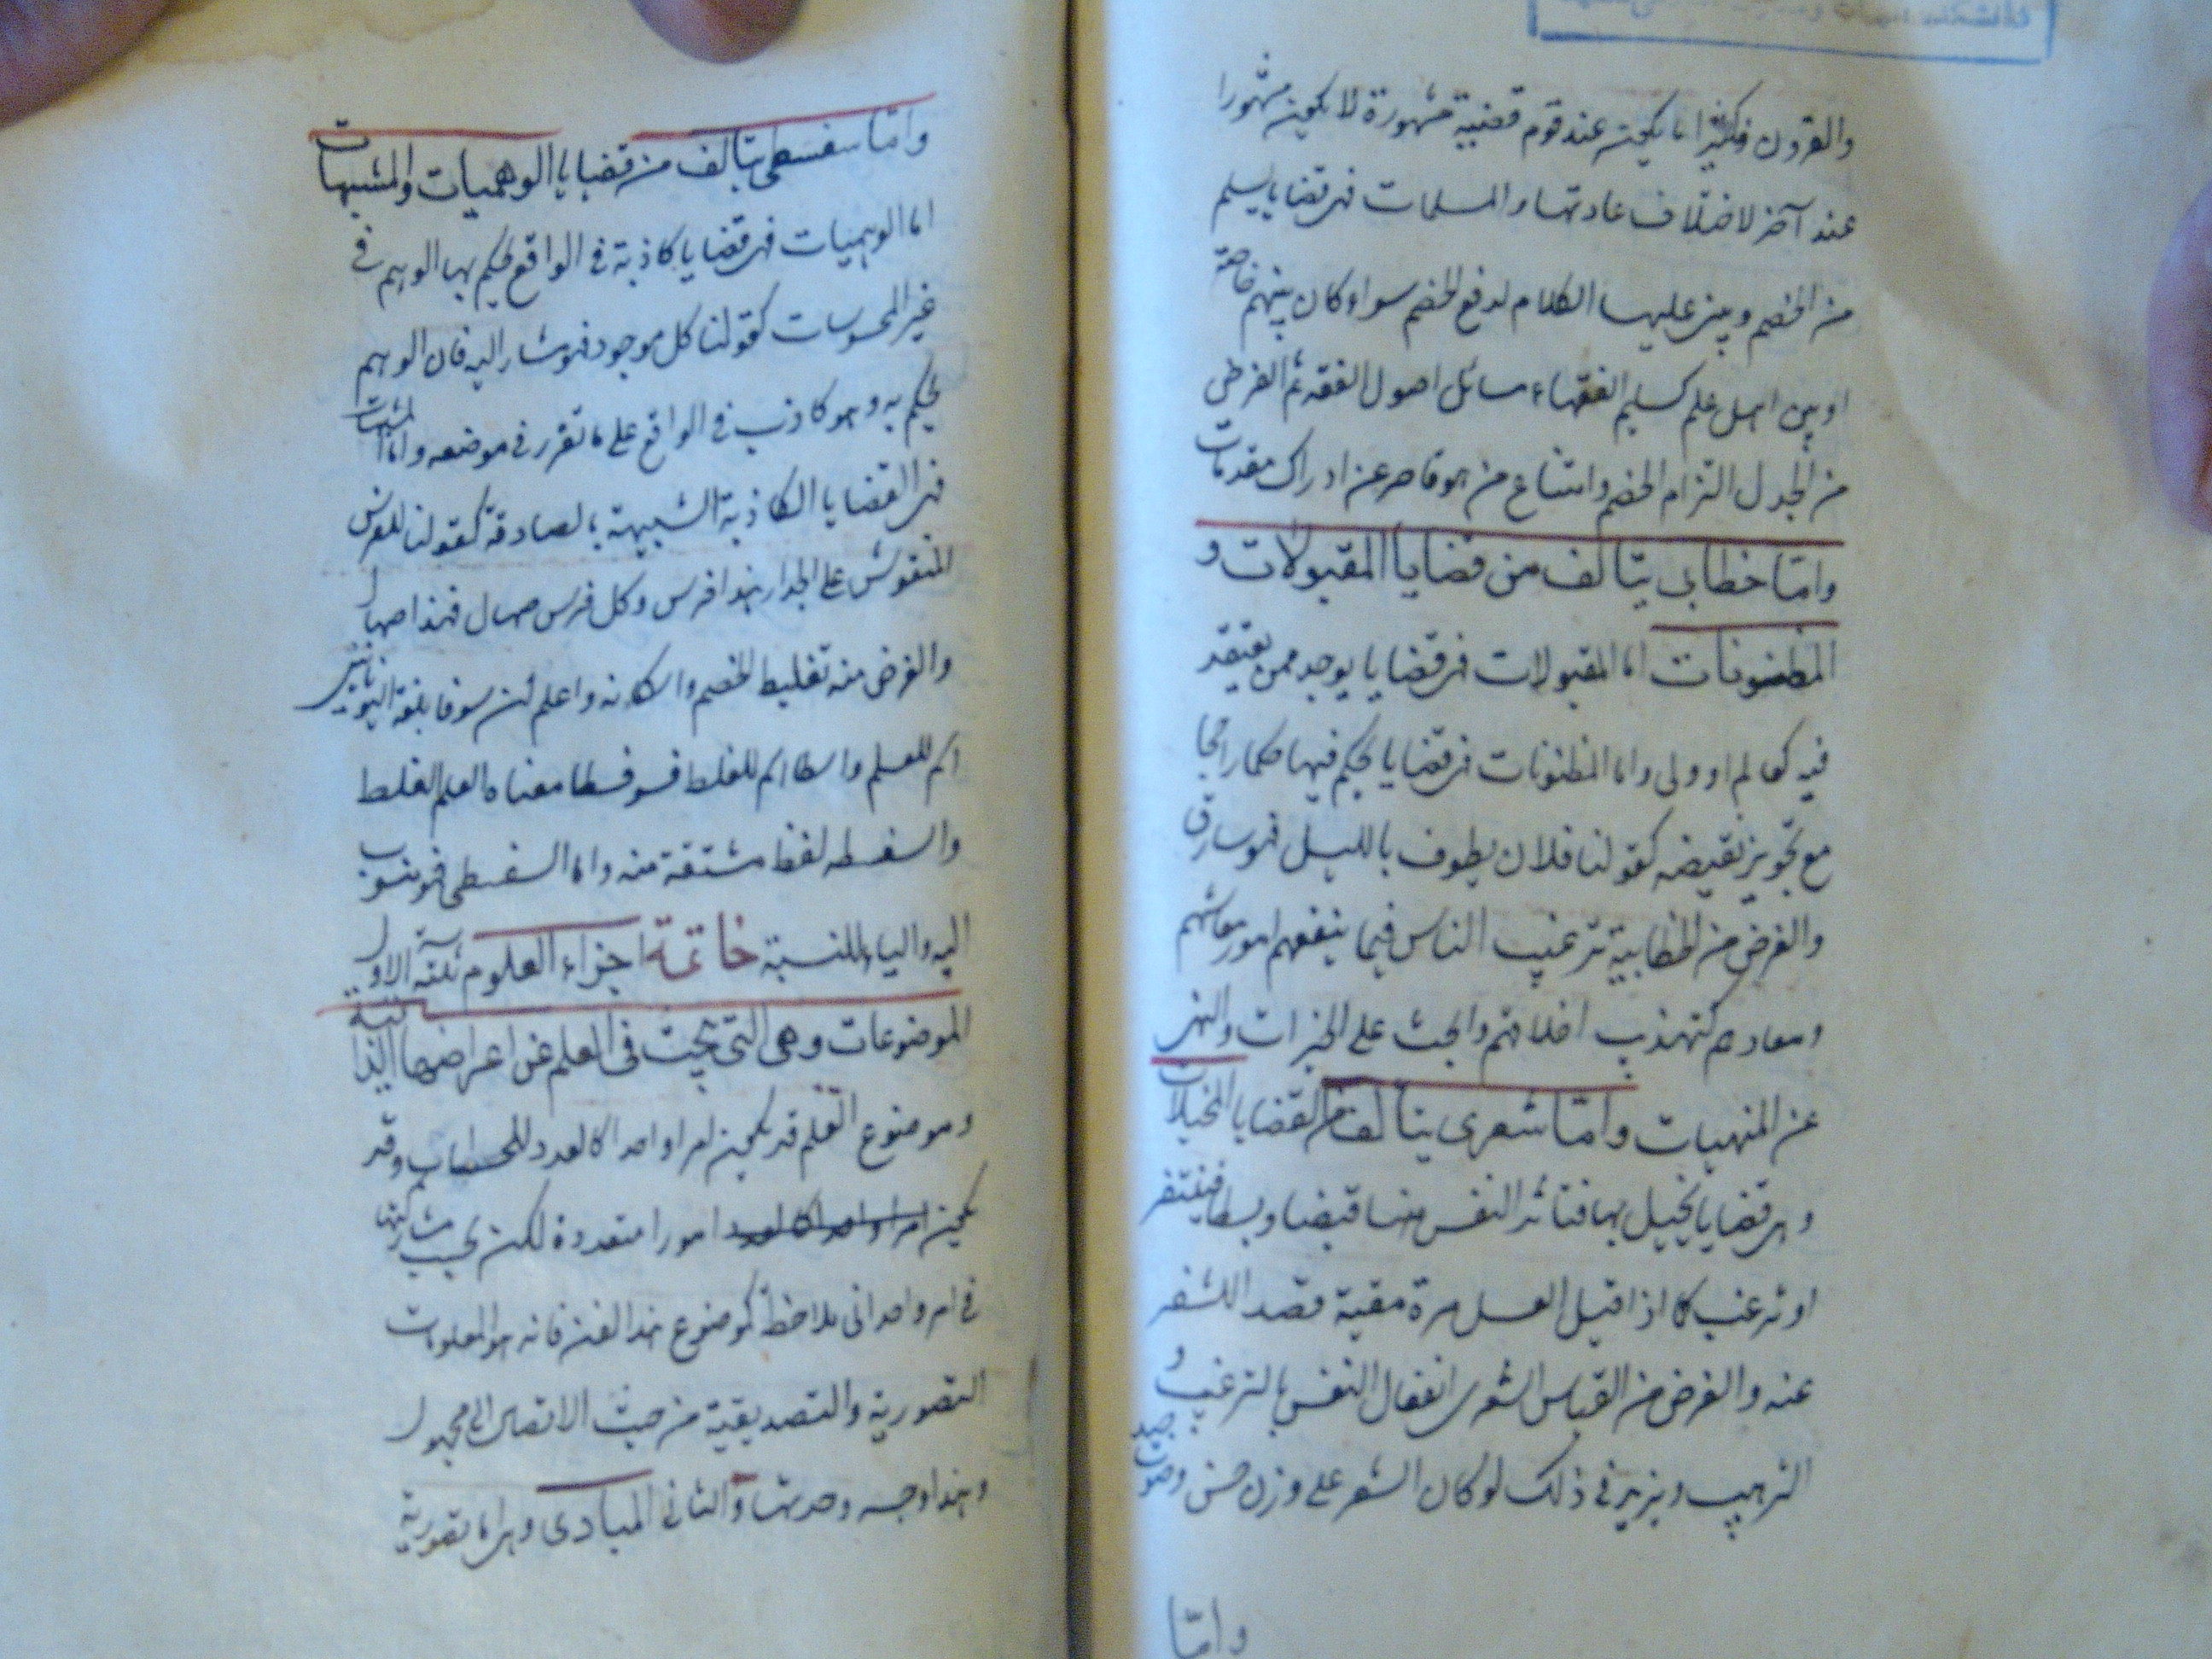 والقرون فكثيرا ما يكون عند قوم قضية مشهورة لا يكون مشهورا
عند آخر لاختلاف عادتها والمسلمات فهي قضايا يسلم
من الخصم ويبنى عليها الكلام لدفع الخصم سواء كان بينهم خاصة
او بين اهل علم كتسليم الفقهاء مسائل اصول الفقه ثم الغرض
من الجدل التزام الخصم واقناع من هو قاصر عن ادراك مقدمات
واما خطابي يتالف من قضايا المقبولات و
المظنونات اما المقبولات فهي قضايا يوجد ممن يعتقد
فيه كعالم او ولي واما المظنونات فهي قضايا يحكم فيها حكما راجحا
مع تجويز نقيضه كقولنا فلان يطوف بالليل فهو سارق
والغرض من الخطابية ترغيب الناس فيما ينفعهم امور معاشهم
ومعادهم كتهذيب اخلاقهم والحث على الخيرات والنهي
عن المنهيات واما شعري يتالف من القضايا المخيلات
وهي قضايا يخيل بها فتتأثر النفس منها قبضا وبسطا فينتفر
او ترغب كما اذا قيل العسل مرة مقيئة قصد التنفر
عنه والغرض من القياس الشعري انفعال النفس بالترغيب و
الترهيب ويزيد في ذلك لو كان الشعر على وزن حسن وصوت جيد
واما
واما سفسطي يتالف من قضايا الوهميات والمشبهات
اما الوهميات فهي قضايا كاذبة في الواقع يحكم بها الوهم في
غير المحسوسات كقولنا كل موجود فهو مشار اليه فان الوهم
يحكم به وهو كاذب في الواقع على ما تقرر في موضعه واما المشبهات
فهي القضايا الكاذبة الشبيهة بالصادقة كقولنا للفرس
المنقوش على الجدار هذا فرس وكل فرس صهال فهذا صهال
والغرض منه تغليط الخصم واسكاته واعلم ان سوفا بلغة اليونانيين
اسم للعلم واسطا اسم للغلط فسوفسطا معناه العلم الغلط
والسفسطه لفظ مشتقة منه واما السفسطي فهو منسوب
اليه والياء للنسبة خاتمة اجزاء العلوم ثلثة الاول
الموضوعات وهي التي يبحث في العلم عن اعراضها الذاتية
وموضوع العلم قد يكون امرا واحدا كالعدد للحساب وقد
يكون امرا واحدا كالعدد امورا متعددة لكن يجب مشاركتها
في امر واحد اني ملاحظ كموضوع هذا الفن فانه هو المعلومات
التصورية والتصديقية من حيث الايصال الى مجهول
وهذا وجه وحدتها والثاني المبادي وهي اما تصورية